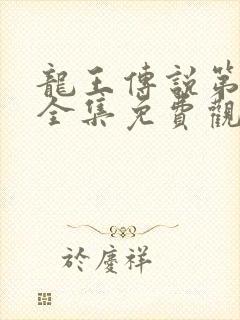 龍王傳說第
全集免費觀
於慶祥